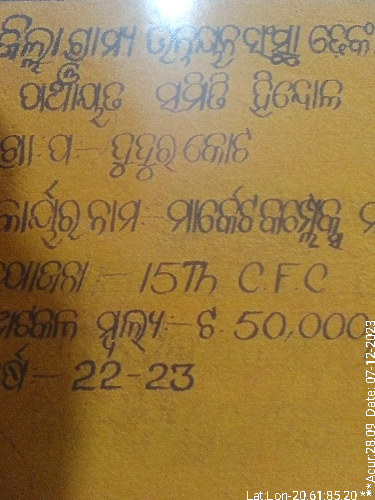 ଜିଲ୍ଲା ଗ୍ରାମ୍ୟ ଉନ୍ନୟନ ସଂସ୍ଥା ଢେଙ୍କ
ପଞ୍ଚାୟତ ସମିତି ହିନ୍ଦୋଳ
ଗ୍ରା: ପ:- ଦୁଦୁରକୋଟ
କାର୍ଯ୍ୟର ନାମ- ମାର୍କେଟ କମ୍ପ୍ଲେକ୍ସ ମ
ଯୋଜନା:- 15Th C.F.C
ଅଟକଳ ମୂଲ୍ୟ:- ଟ. 50,000
ବର୍ଷ- 22-23
Lat:Lon-20.61:85.20 ***Acur 28.09 Date: 07-12-2023